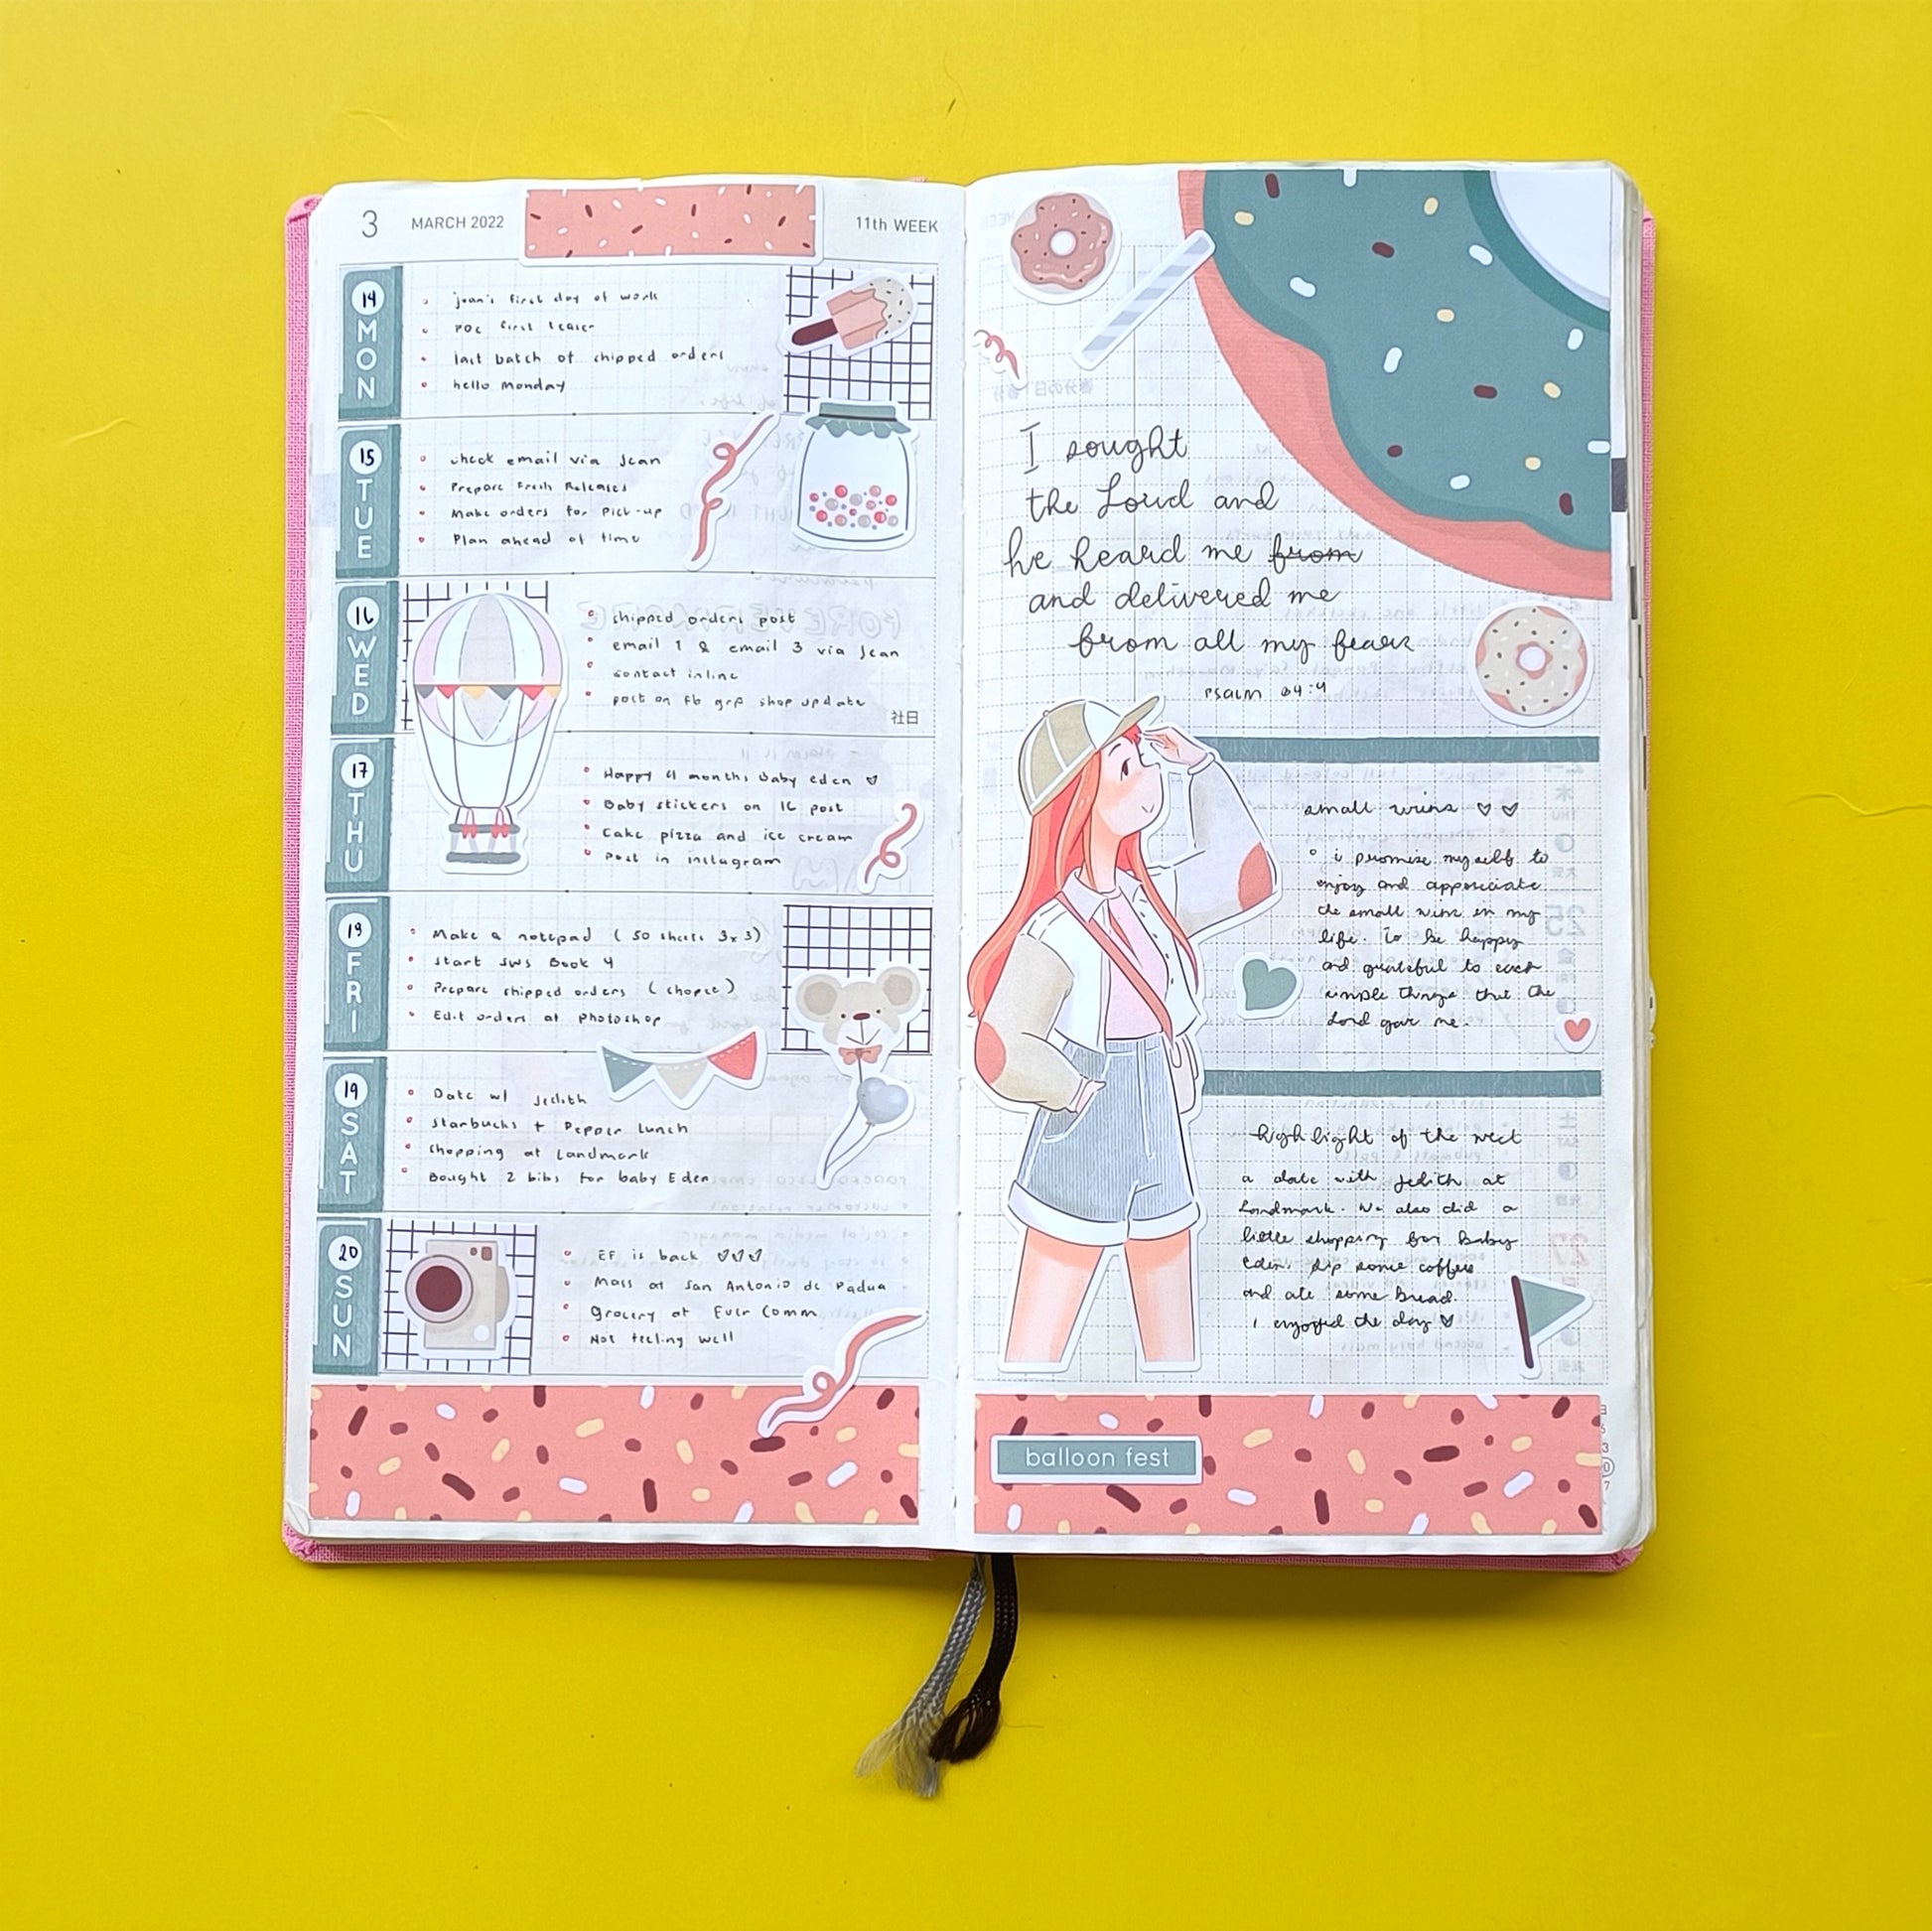 3 MARCH 2022 11th WEEK
14
MON
first day of work
POC first
last batch of shipped orders
hello Monday
15
TUE
check email via Jean
Prepare Fresh Releases
Make orders for Pick-up
Plan ahead of time
16
WED
shipped orders post
email 1 & email 3 via Jean
contact inline
post on fb grp shop update
社日
17
THU
Happy 4 months Baby Eden
Baby stickers on IG post
Cake pizza and ice cream
Post in instagram
FRI
Make a notepad (50 sheets 3x3)
Start SWS Book 4
Prepare shipped orders (shopee)
Edit orders at photoshop
19
SAT
Date w/ Jedith
Starbucks + Pepper Lunch
Shopping at Landmark
Bought 2 bibs for baby Eden
20
SUN
EF is back ♡♡♡
Mass at San Antonio de Padua
Grocery at Ever Comm
Not feeling well
I sought
the Lord and
he heard me from
and delivered me
from all my fears
Psalm 34:4
small wins ♡ ♡
i promise myself to
enjoy and appreciate
the small wins in my
life. To be happy
and grateful to each
simple things that the
Lord gave me.
highlight of the week
a date with Jedith at
Landmark. We also did a
little shopping for baby
Eden, sip some coffee
and ate some bread.
I enjoyed the day ♡
balloon fest